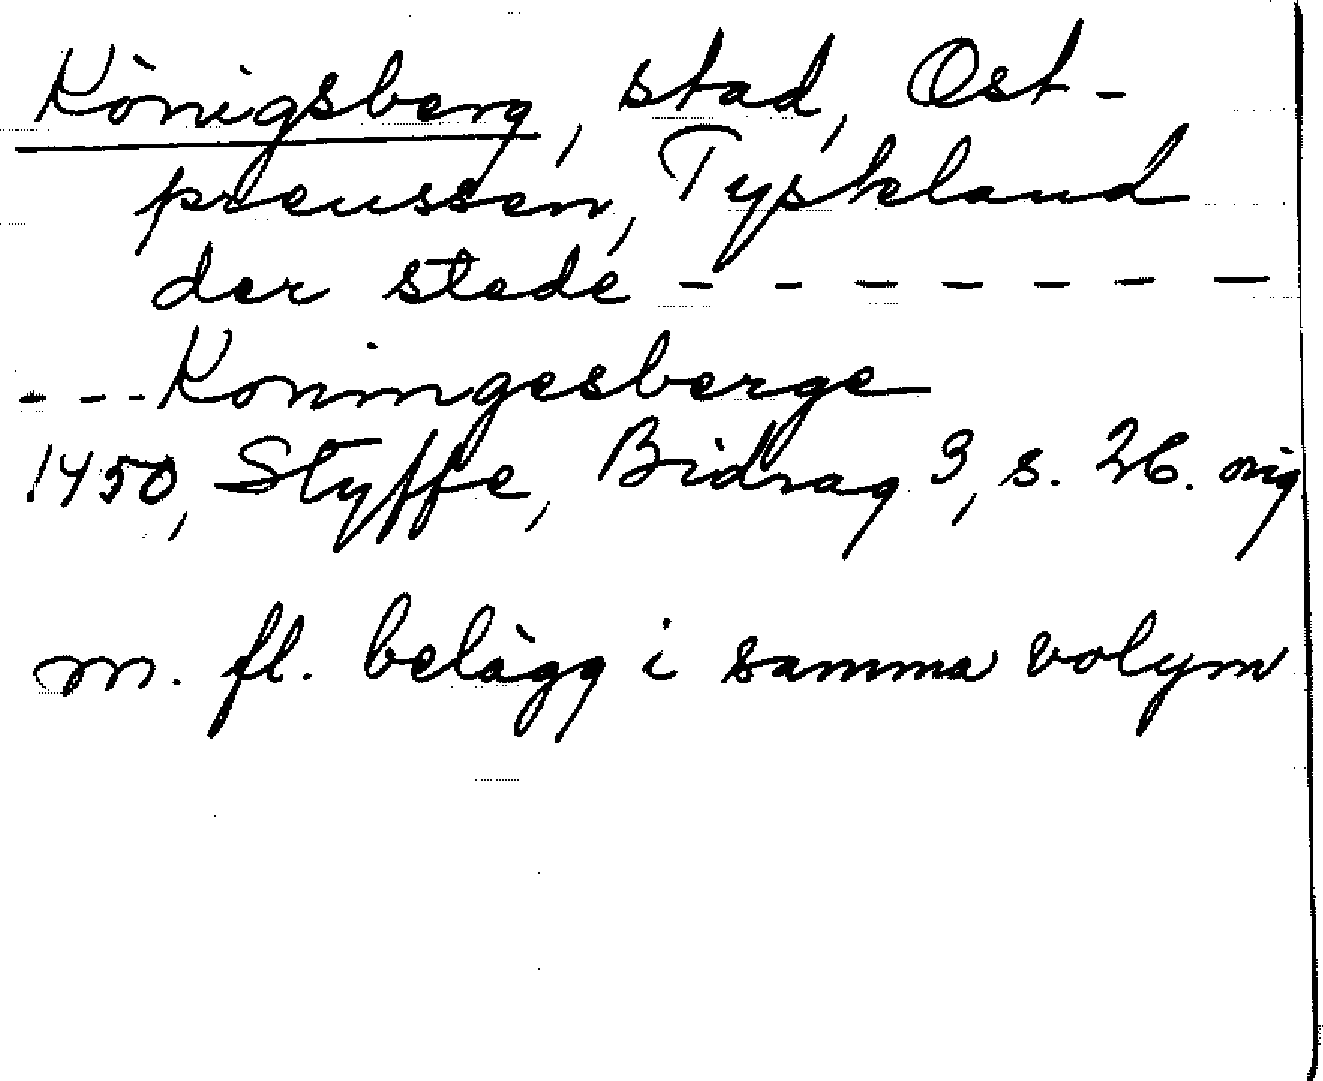 Königsberg, stad, Ost-
preussen, Tyskland
der stede - - - - - - -
- - - Koningesberge
1450, Styffe, Bidrag 3, s. 26. orig
m. fl. belägg i samma volym